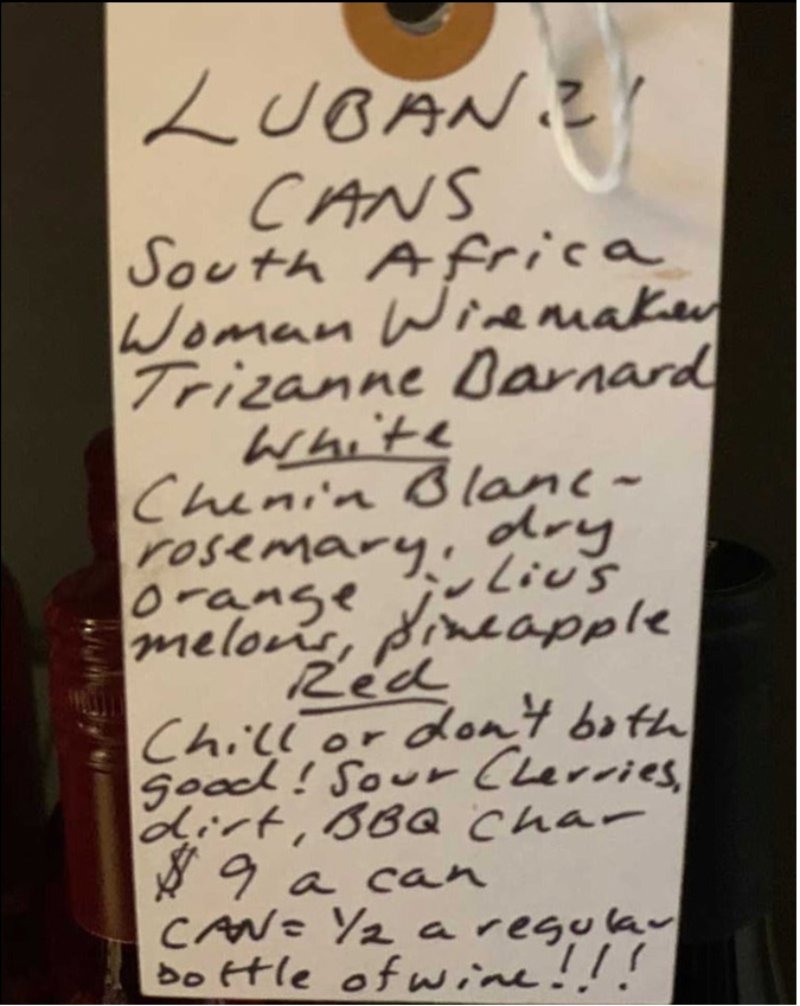 LUBANZI
CANS
South Africa
Woman Winemaker
Trizanne Barnard
White
Chenin Blanc-
rosemary, dry
orange julius
melons, pineapple
Red
Chill or don't both
good! Sour Cherries,
dirt, BBQ char
$9 a can
CAN= 1/2 a regular
bottle of wine!!!